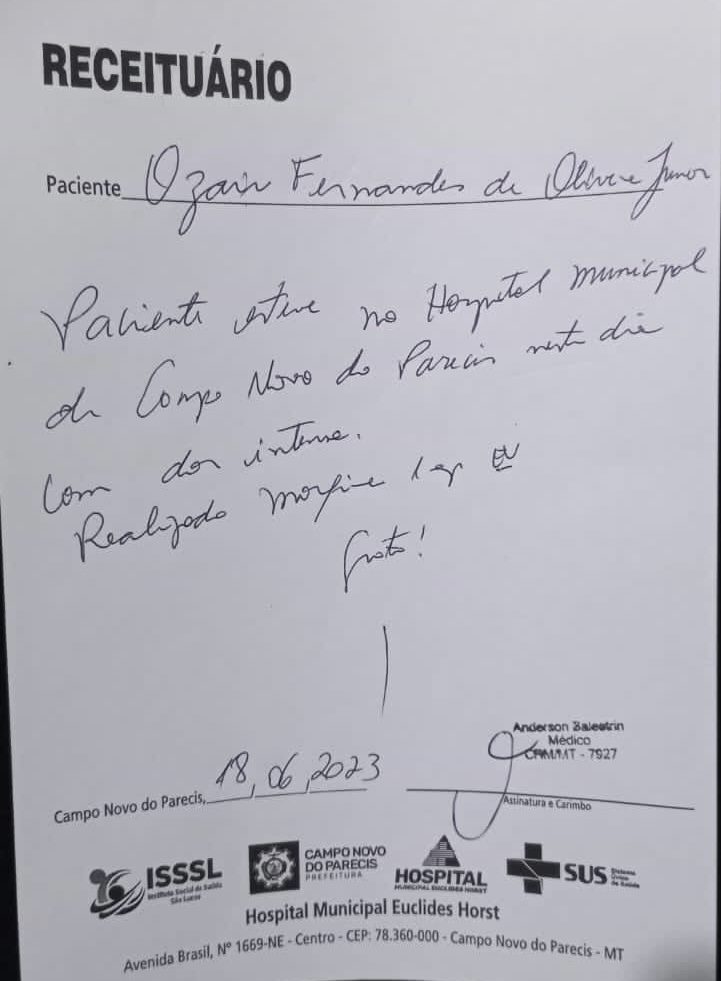 RECEITUÁRIO
Paciente Ozair Fernandes de Oliveira Junior
Paciente esteve no Hospital Municipal
de Campo Novo do Parecis neste dia
com dor intensa.
Realizado morfina 1 EV
Grato!
Anderson Balestrin
Médico
CRM/MT - 7927
Campo Novo do Parecis, 18, 06, 2023
Assinatura e Carimbo
ISSSL
Instituto Social de Saúde
São Lucas
CAMPO NOVO
DO PARECIS
PREFEITURA
HOSPITAL
MUNICIPAL EUCLIDES HORST
SUS Sistema
Único
de Saúde
Hospital Municipal Euclides Horst
Avenida Brasil, Nº 1669-NE - Centro - CEP: 78.360-000 - Campo Novo do Parecis - MT